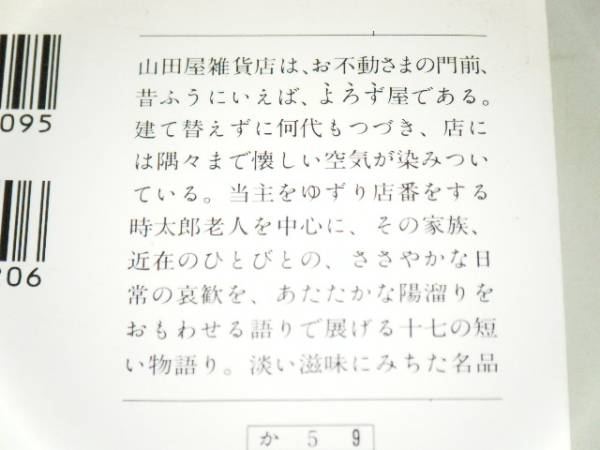 山田屋雑貨店は、お不動さまの門前、
昔ふうにいえば、よろず屋である。
建て替えずに何代もつづき、店に
は隅々まで懐しい空気が染みつい
ている。当主をゆずり店番をする
時太郎老人を中心に、その家族、
近在のひとびとの、ささやかな日
常の哀歓を、あたたかな陽溜りを
おもわせる語りで展げる十七の短
い物語り。淡い滋味にみちた名品
095
206
か 5 9